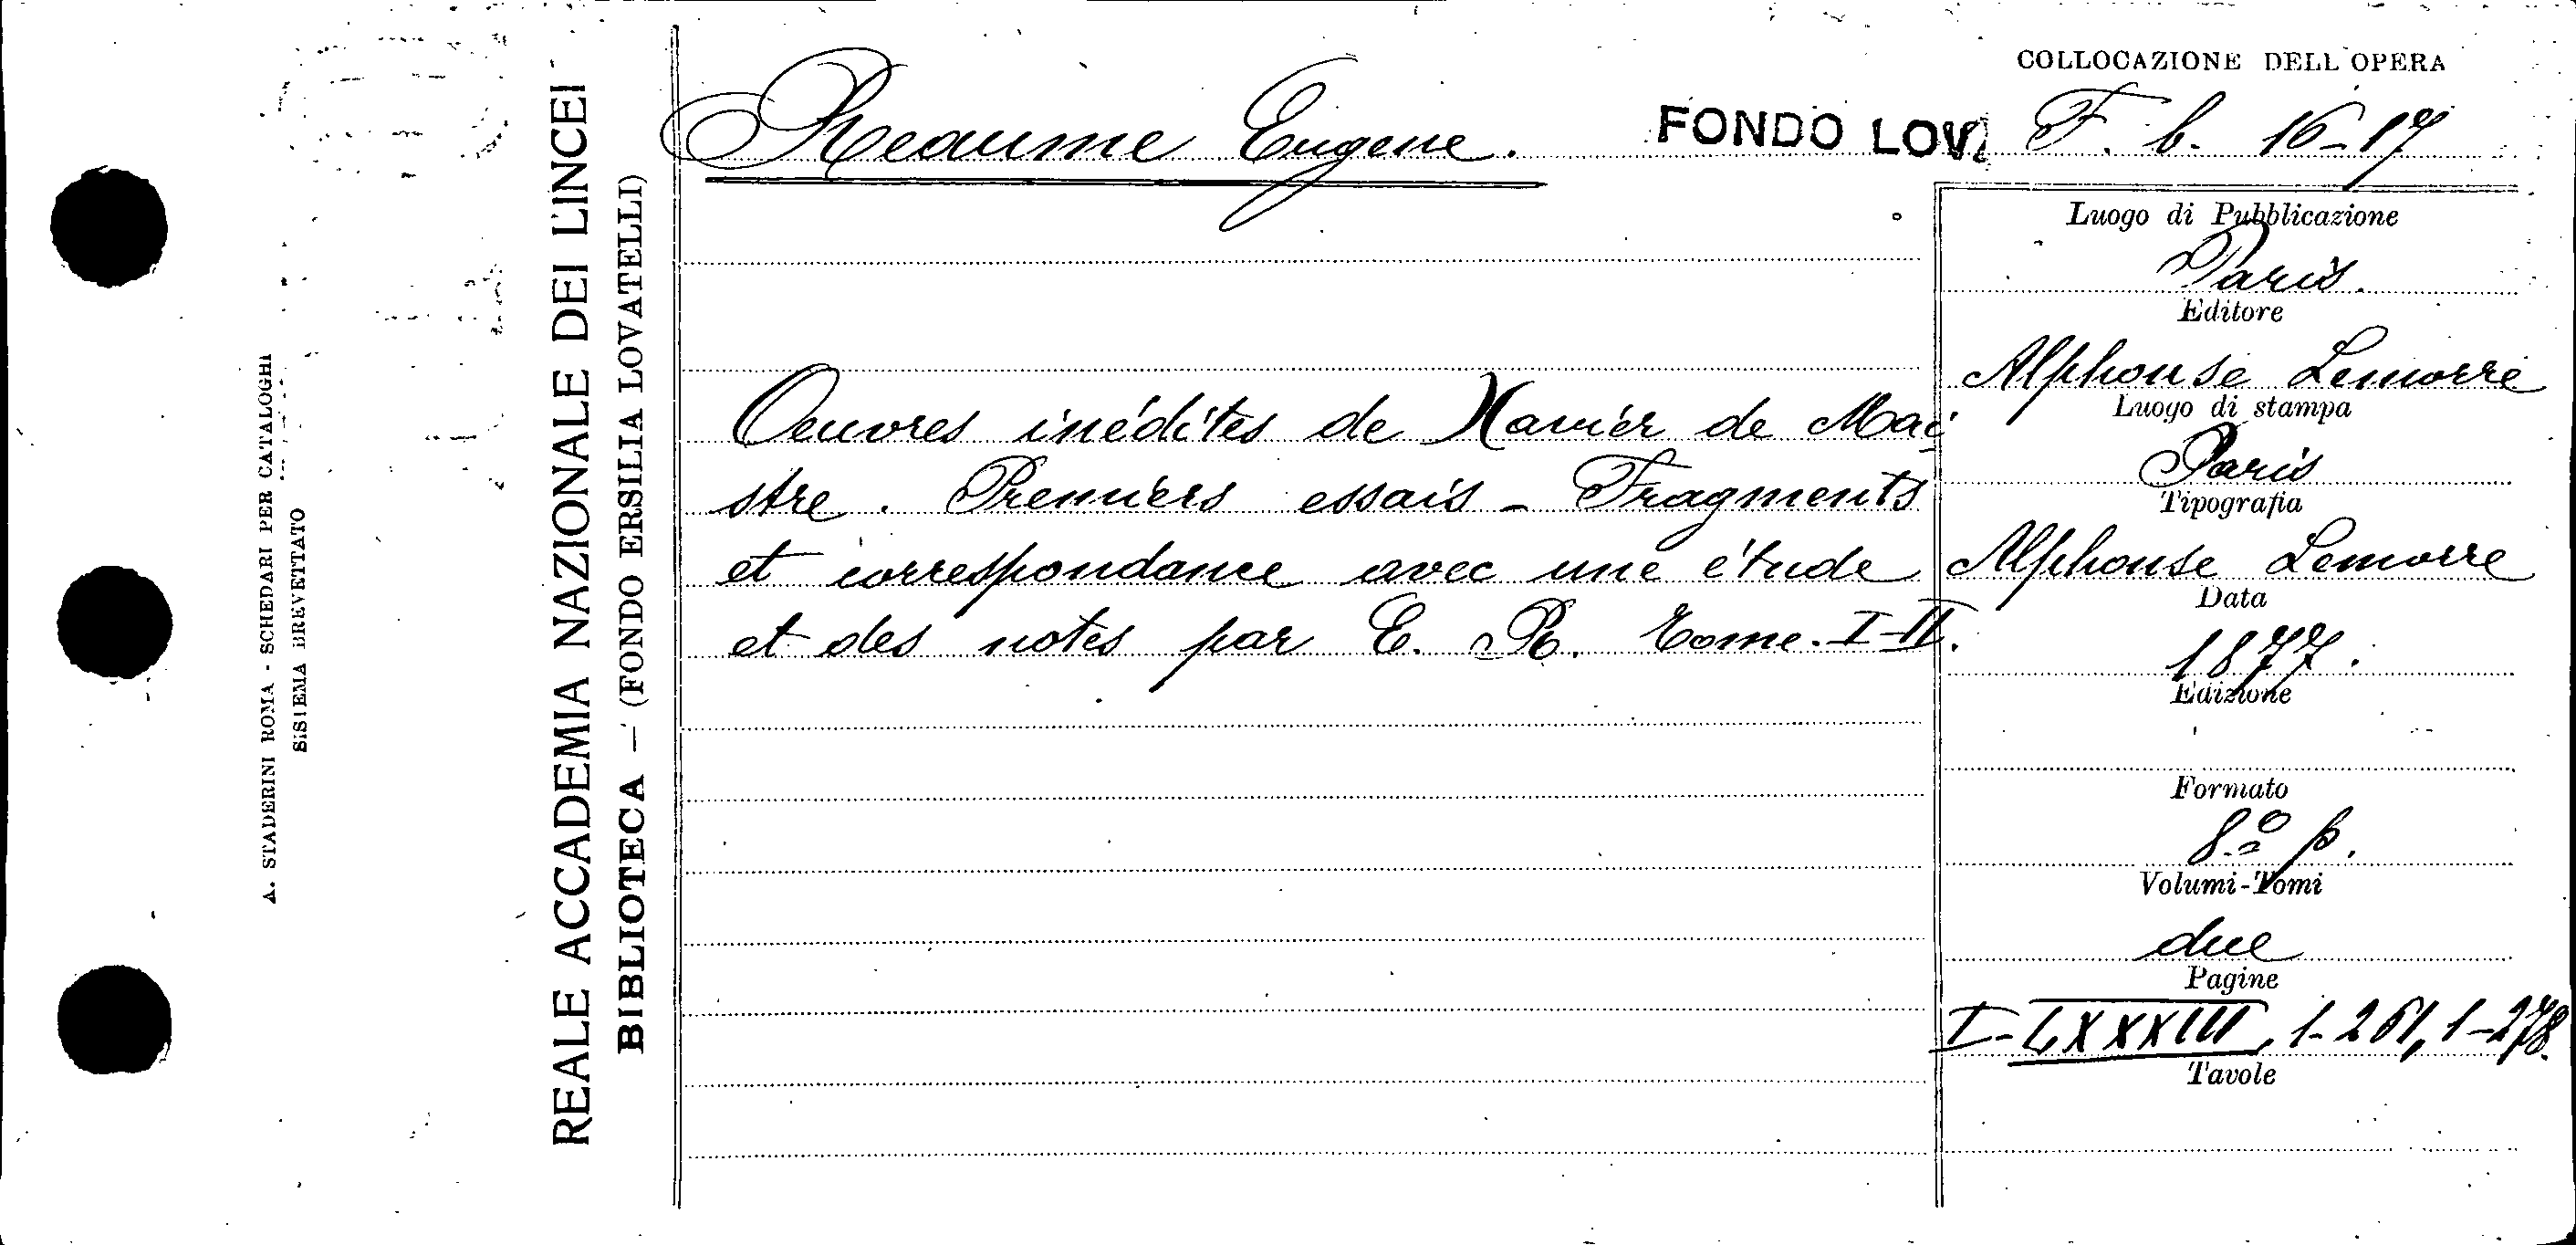 A. STADERINI ROMA - SCHEDARI PER CATALOGHI
SISTEMA BREVETTATO
REALE ACCADEMIA NAZIONALE DEI LINCEI
BIBLIOTECA — (FONDO ERSILIA LOVATELLI)
COLLOCAZIONE DELL'OPERA
Reaume Eugene.
FONDO LOV. F. b. 16-17
Oeuvres inédites de Xavier de Mai
stre. Premiers essais - Fragments
et correspondance avec une étude
et des notes par E. R. Tome. I-II.
Luogo di Pubblicazione
Paris.
Editore
Alphonse Lemerre
Luogo di stampa
Paris
Tipografia
Alphonse Lemerre
Data
1877.
Edizione
Formato
8º p.
Volumi-Tomi
due
Pagine
I-LXXXIII, 1-261, 1-278.
Tavole